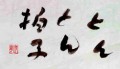 とん
とん
拍子